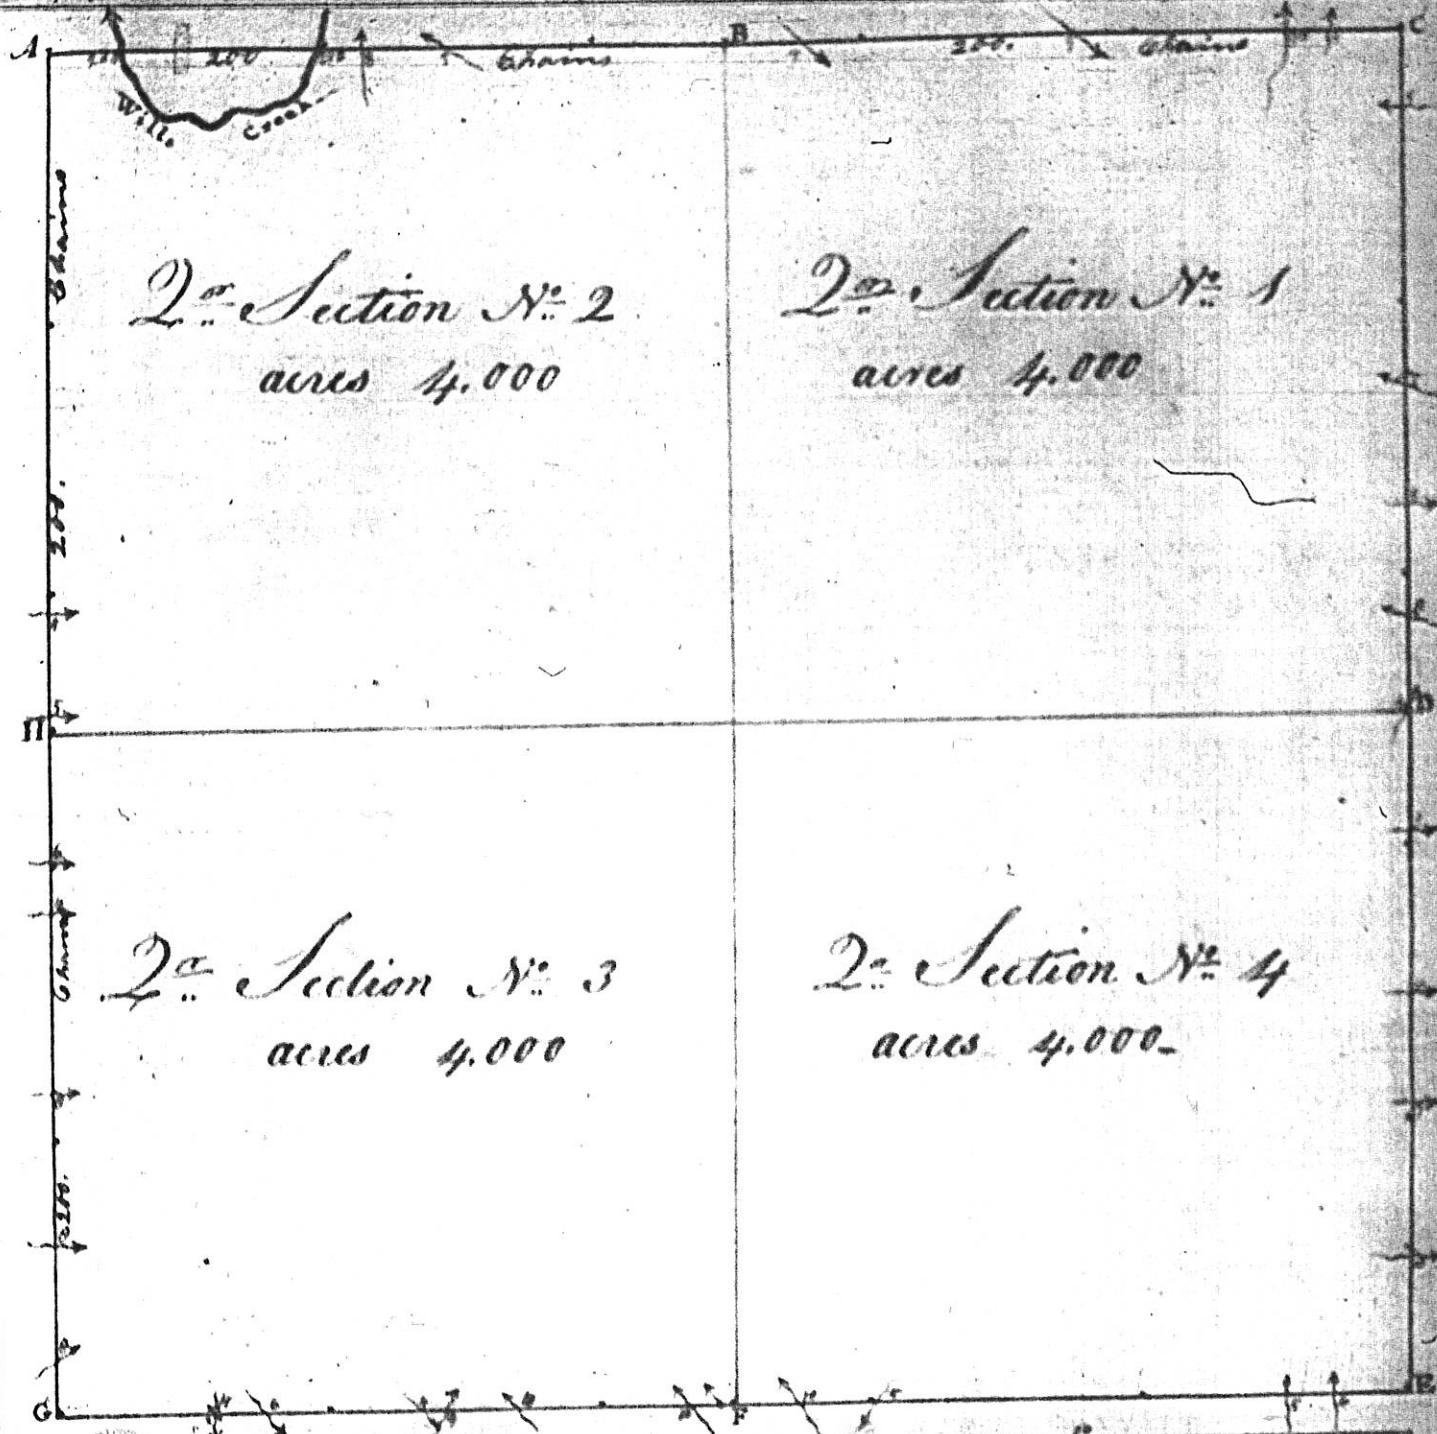 A B C
200 Chains 200. Chains
Will. Creek
Chains
200.
2.or Section No. 2
acres 4.000
2.or Section No. 1
acres 4.000
H D
Chains
200.
2.r Section No. 3
acres 4.000
2.r Section No. 4
acres 4.000
G F E